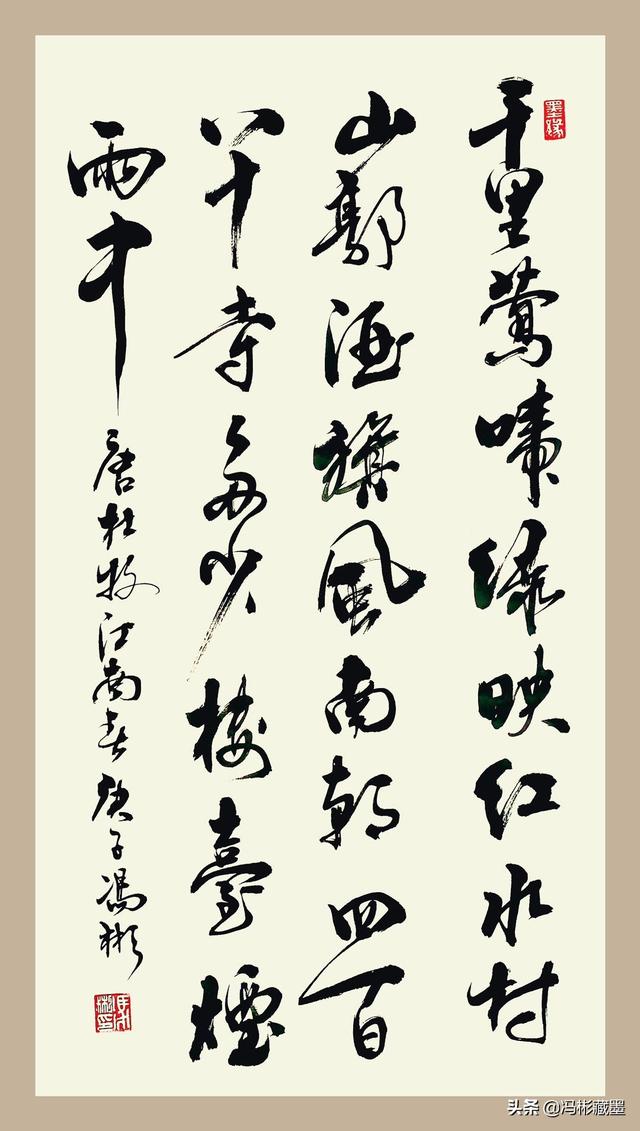 千里莺啼绿映红水村
山郭酒旗風南朝四百
八十寺多少楼臺煙
雨中
唐杜牧江南春庚子馮彬
墨缘
头条 @冯彬藏墨